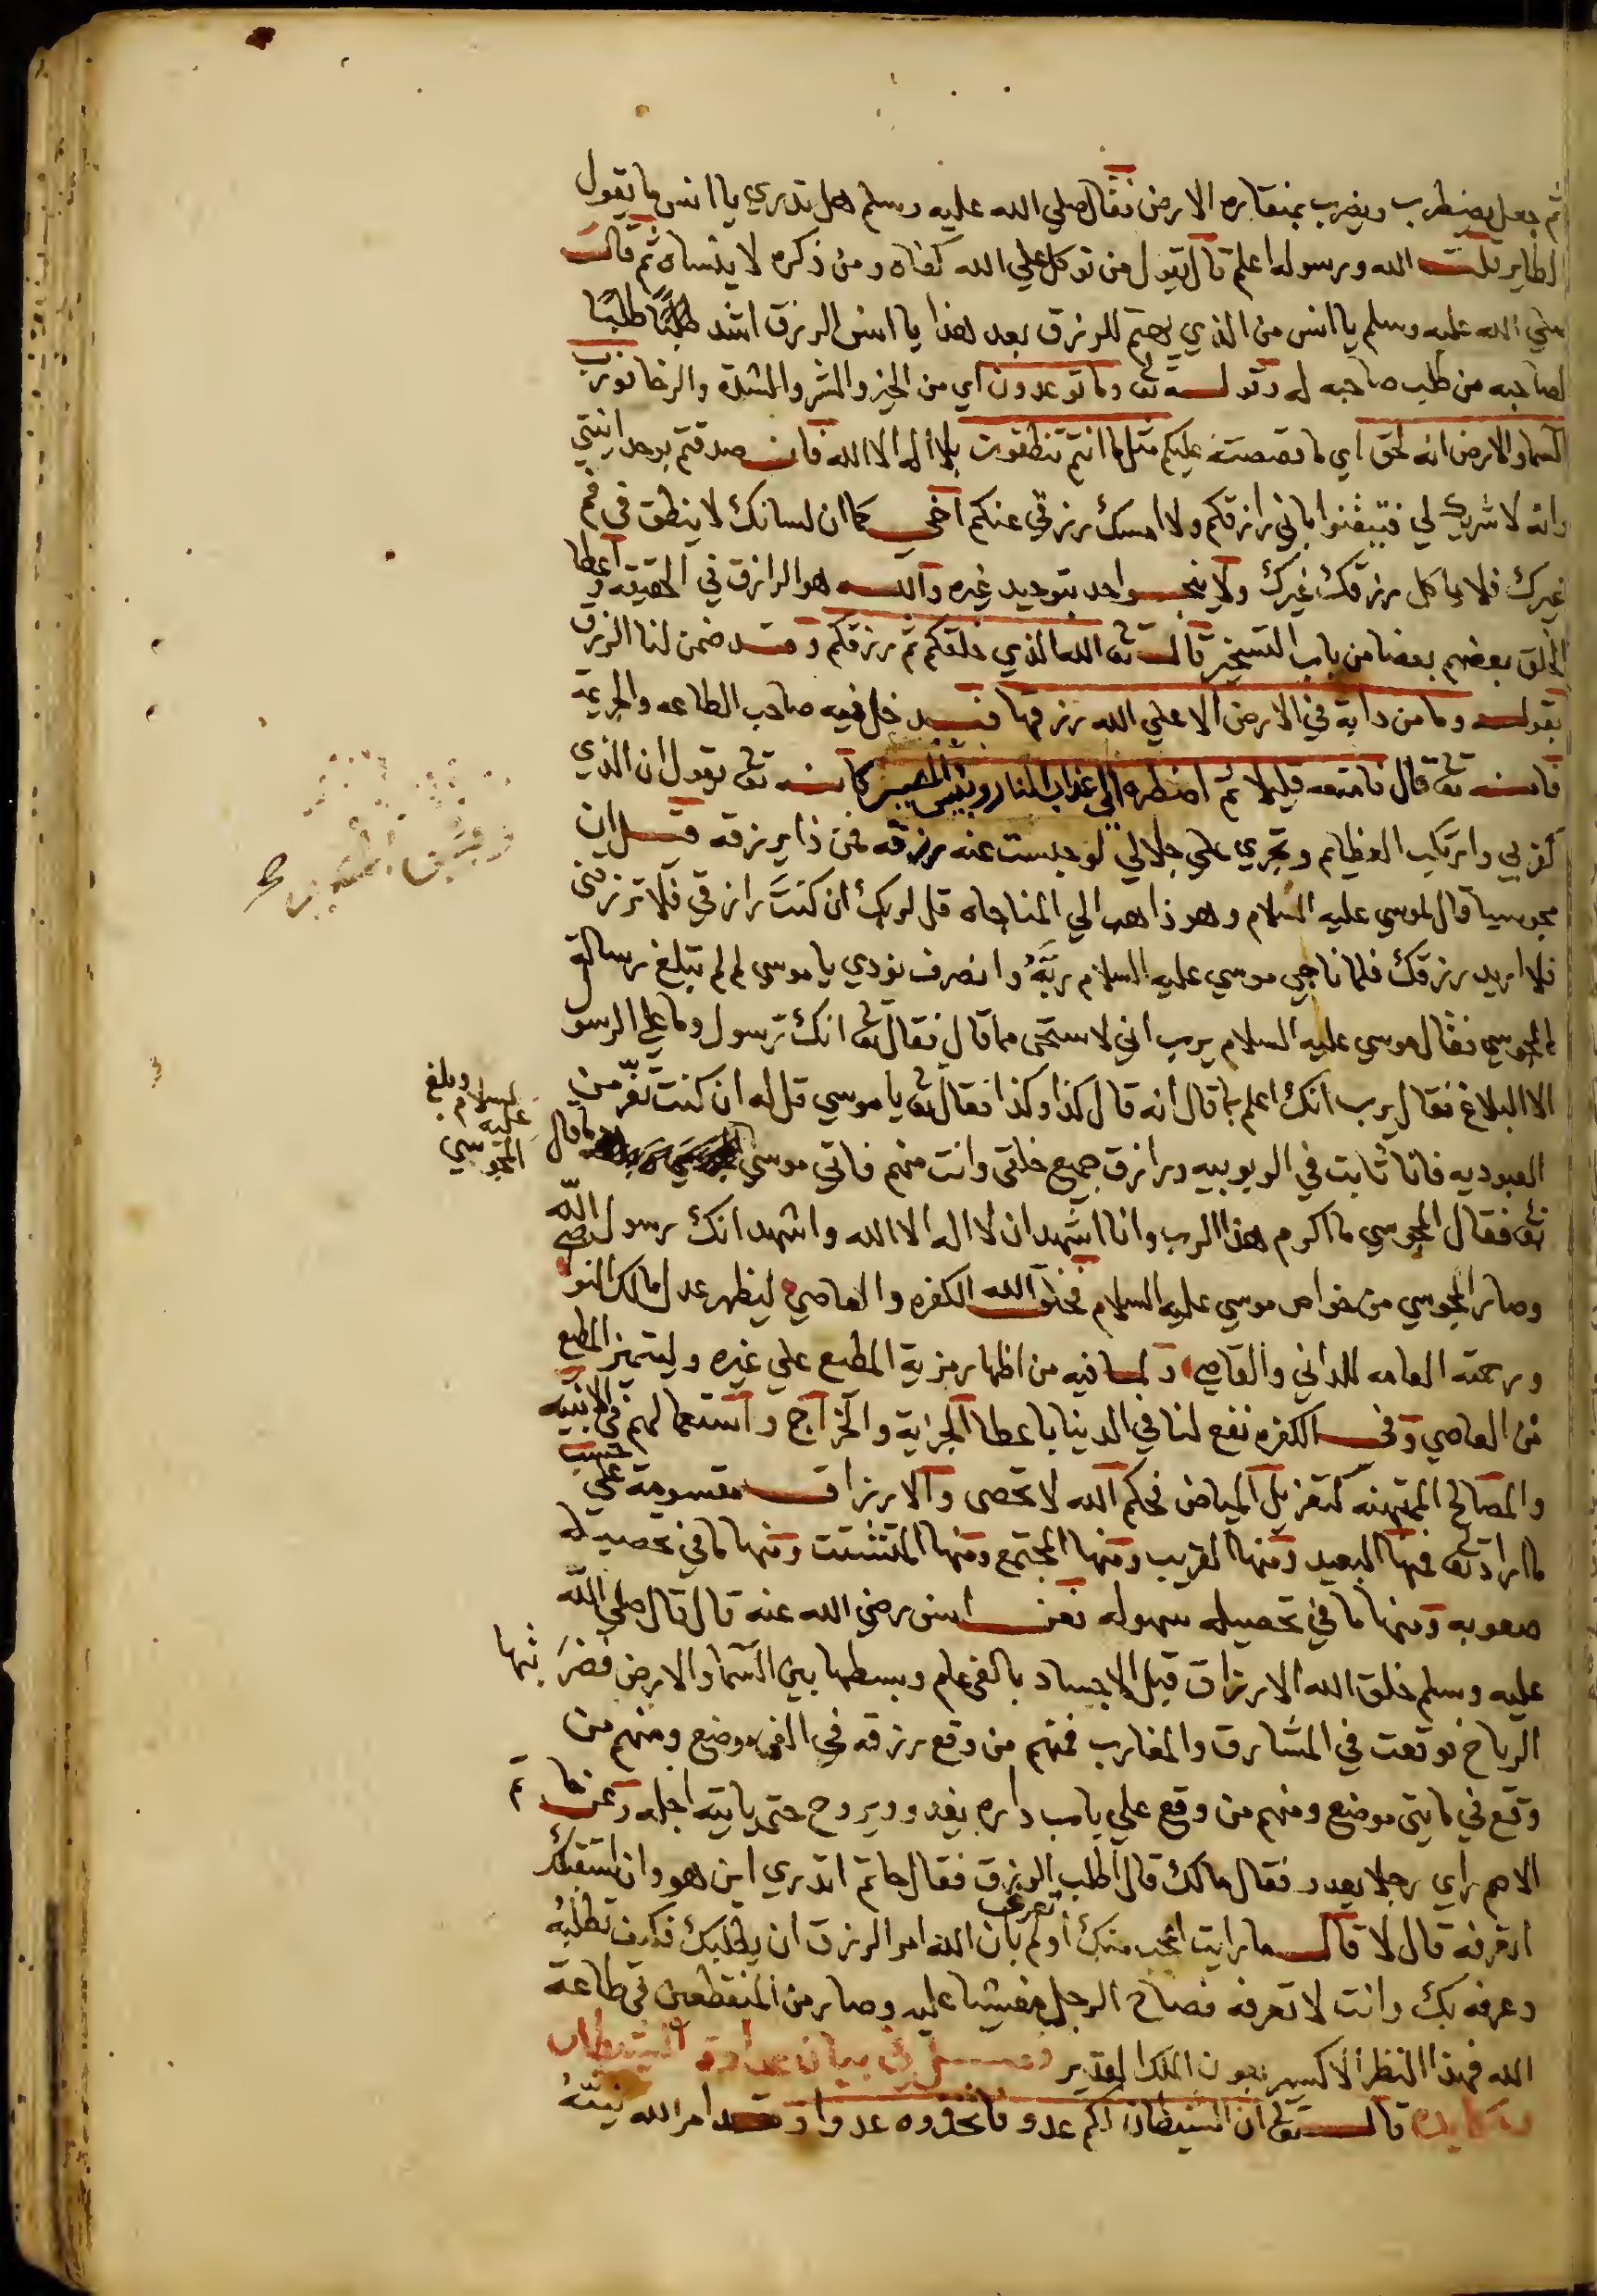 ثم جعل يضطرب ويضرب بمنقاره الارض فقال صلي الله عليه وسلم هل تدري يا انس ما يقول
الطاير قلت الله ورسوله اعلم قال يقول من توكل علي الله كفاه ومن ذكره لا ينساه ثم قال
صلي الله عليه وسلم يا انس من الذي يهتم للرزق بعد هذا يا انس الرزق اشد طلبًا
لصاحبه من طلب صاحبه له وقوله تع وما توعدون اي من الخير والشر والشدة والرخا فورب
السما والارض انه لحق اي ما قصصته عليكم مثل ما انتم تنطقون بلا اله الا الله فان صدقتم بوحدانيتي
وانه لا شريك لي فتيقنوا باني رازقكم ولا امسك رزقي عنكم اخي كما ان لسانك لا ينطق في فم
غيرك فلا ياكل رزقك غيرك ولا ينجو احد بتوحيد غيره والله هو الرازق في الحقيقة واعطا
الخلق بعضهم بعضا من باب التسخير قال تع الله الذي خلقكم ثم رزقكم وقد ضمن لنا الرزق
بقوله وما من دابة في الارض الا علي الله رزقها فقد دخل فيه صاحب الطاعه والجريمة
فانه تع قال فامتعه قليلا ثم اضطره الي عذاب النار وبئس المصير كانه تع يقول ان الذي
كفر بي وارتكب العظايم وتجري علي جلالي لو حبست عنه رزقه فمن ذا يرزقه قيل ان
مجوسيا قال لموسي عليه السلام وهو ذاهب الي المناجاه قل لربك ان كنتَ رازقي فلا ترزقني
فلا اريد رزقك فلما ناجي موسي عليه السلام ربَّهُ وانصرف نودي يا موسي لم لم تبلغ رسالة
المجوسي فقال موسي عليه السلام يرب اني لاستحي مما قال فقال تع انك رسول وما علي الرسول
الا البلاغ فقال يرب انك اعلم بما قال انه قال كذا وكذا فقال تع يا موسي قل له ان كنت تفرّ من
العبوديه فانا ثابت في الربوبيه ورازق جميع خلقي وانت منهم فاتي موسي ما قال
عليه السلام وبلغ المجوسي
تع فقال المجوسي ما اكرم هذا الرب وانا اشهد ان لا اله الا الله واشهد انك رسول الله
وصار المجوسي من خواص موسي عليه السلام فخلق الله الكفره والعاصي ليظهر عدل مالك النواصي
ورحمته العامه للداني والقاصي ولما فيه من اظهار مزية المطيع علي غيره وليتميز المطيع
من العاصي وفي الكفره نفع لنا في الدنيا باعطا الجزاية والخراج واستعمالهم في الابنيه
والمصالح الممتهنه كتعزيل المياض فحكم الله لا تحصى والارزاق مقسومة علي حسب
ما اراد تع فمنها البعيد ومنها القريب ومنها المجتمع ومنها المتشتت ومنها ما في تحصيله
صعوبه ومنها ما في تحصيله سهوله فعن انس رضي الله عنه قال قال صلي الله
عليه وسلم خلق الله الارزاق قبل الاجساد بالفي عام وبسطها بين السما والارض فضربتها
الرياح فوقعت في المشارق والمغارب فمنهم من وقع رزقه في الف موضع ومنهم من
وقع في مايتي موضع ومنهم من وقع علي باب داره يغدو ويروح حتي ياتيه اجله وعن حاتم
الاصم راي رجلا يعدو فقال مالك قال اطلب الرزق فقال حاتم اتدري اين هو وان استقبلك
اتعرفه قال لا قال ما رايت اعجب منك اولم تعرف بان الله امر الرزق ان يطلبك فكيف تطلبهُ
وعرفه بك وانت لا تعرفه فصاح الرجل مغشيا عليه وصار من المنقطعين في طاعة
الله فهذا النظر الاكسير بعون الملك القدير فصل في بيان عداوة الشيطان
ومكايده قال تع ان الشيطان لكم عدو فاتخذوه عدوا وقد امر الله نبيّهُ